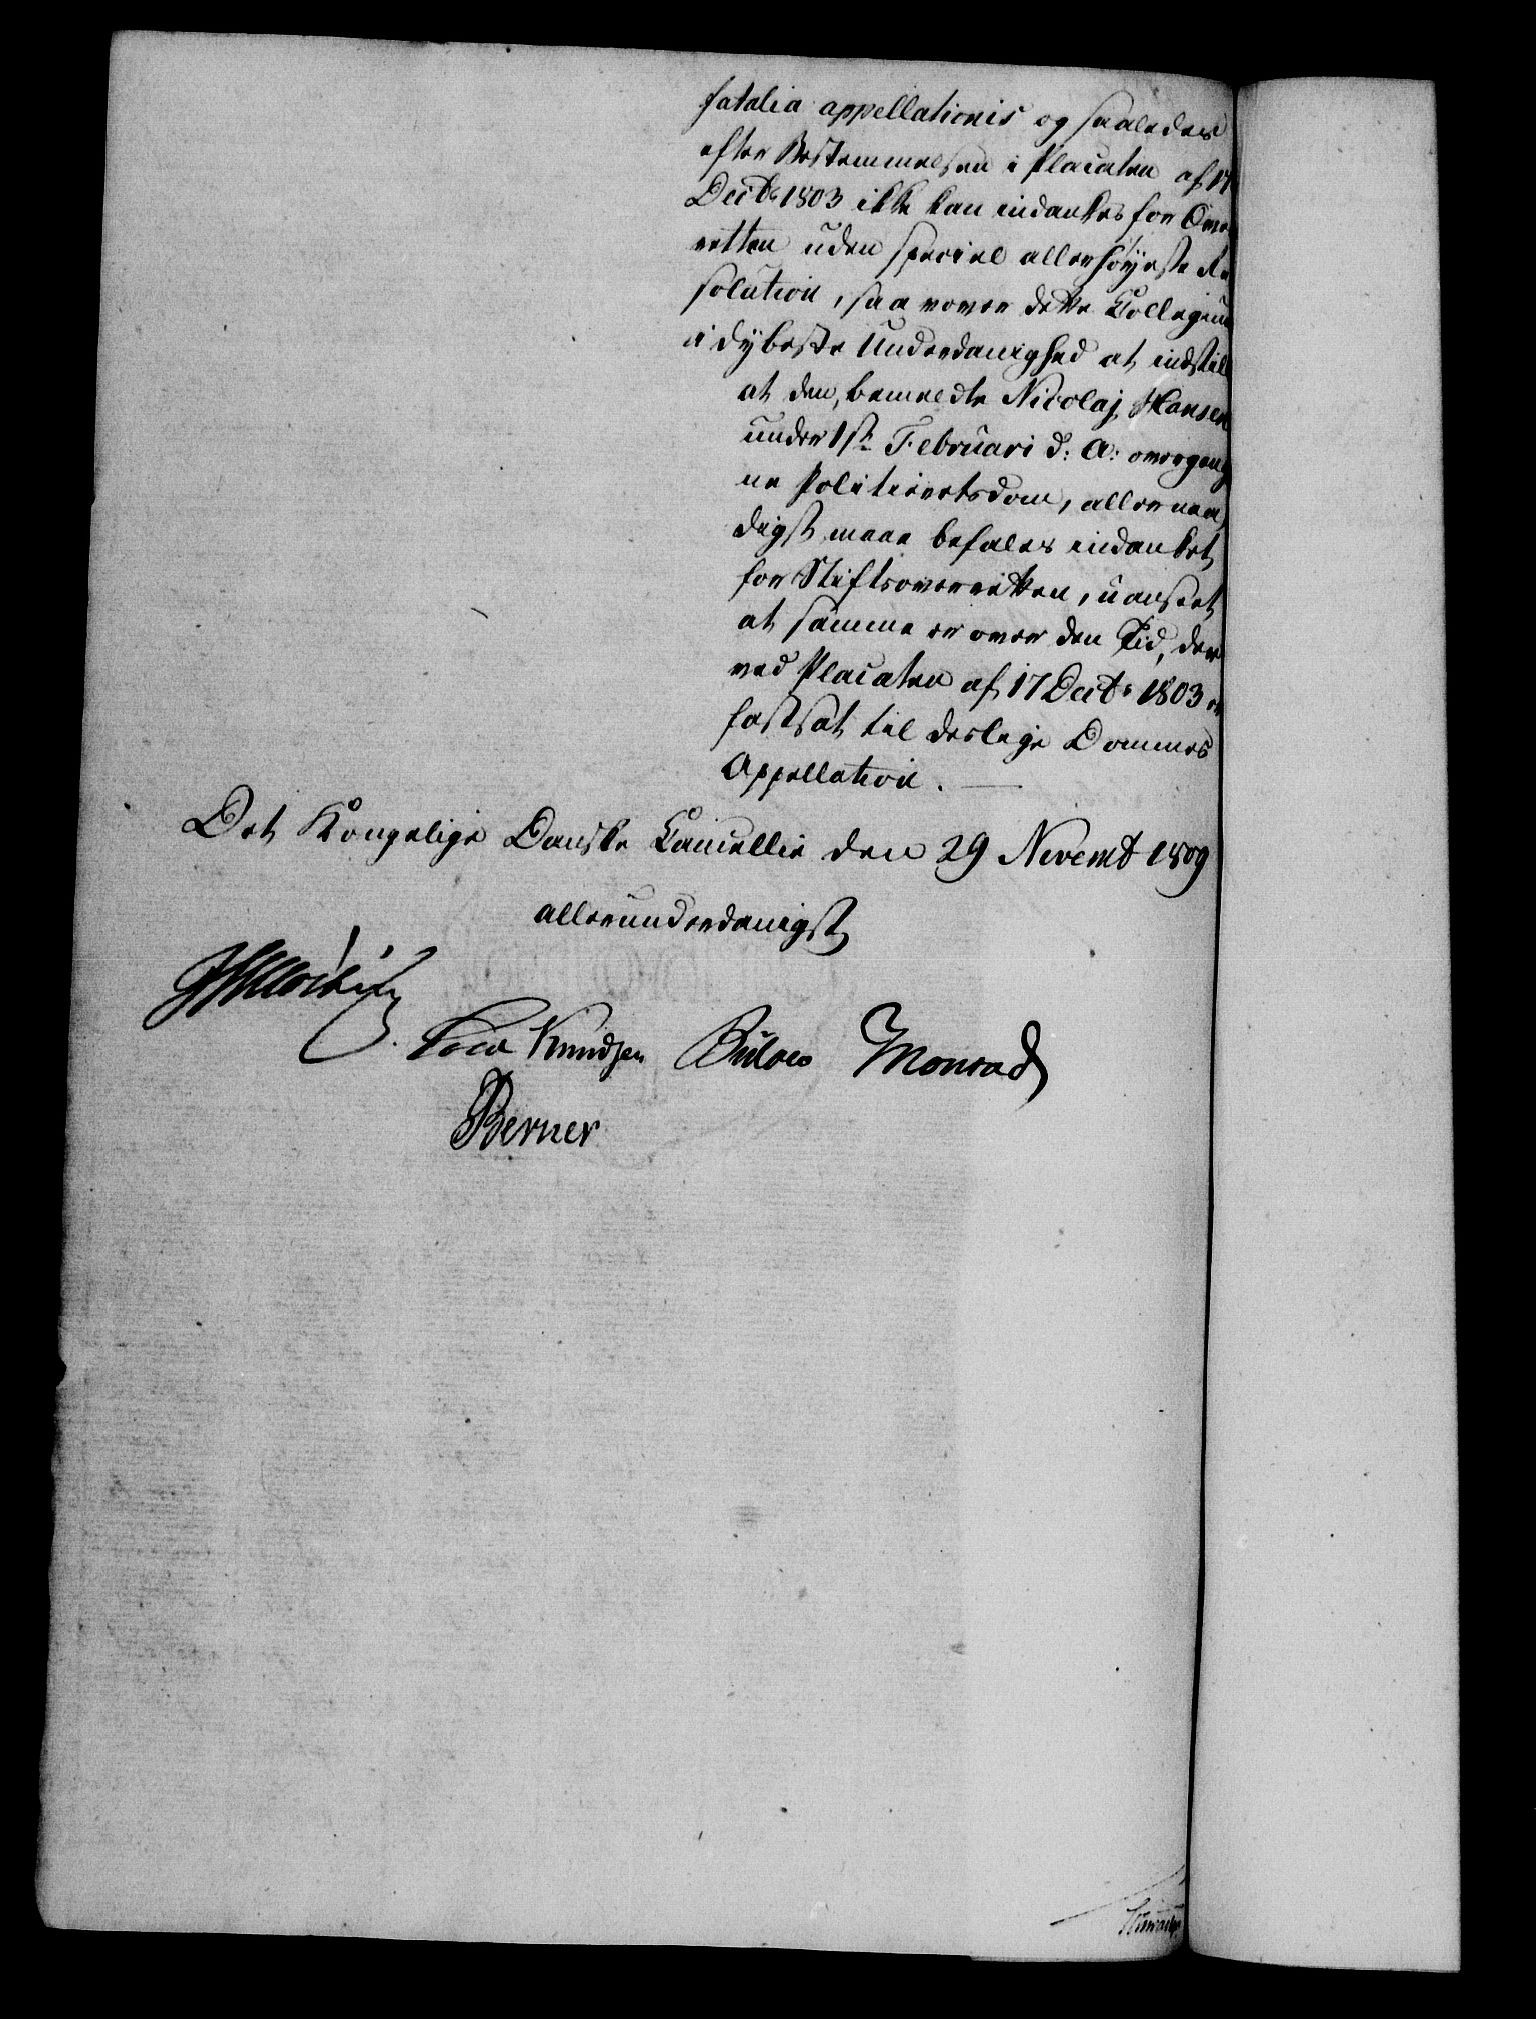 fatalia appellationis og saaledes
efter Bestemmelsen i Placaten af 17
Decbr 1803 ikke kan indankes for Over
retten uden speciel allerhøyeste Re
solution, saa vover dette Collegium
i dybeste Underdanighed at indstille
at den, bemeldte Nicolaj Hansen
under 1ste Februari d: A: overgang
ne Politieretsdom, allernaa
digst maae befales indanket
for Stiftsoverretten, uanseet
at samme er over den Tid, der
ved Placaten af 17 Decbr 1803 er
fastsat til deslige Dommes
Appellation.
Det Kongelige Danske Cancellie den 29 Novemb 1809
allerunderdanigst
Knudsen Bülow Monrad
Berner